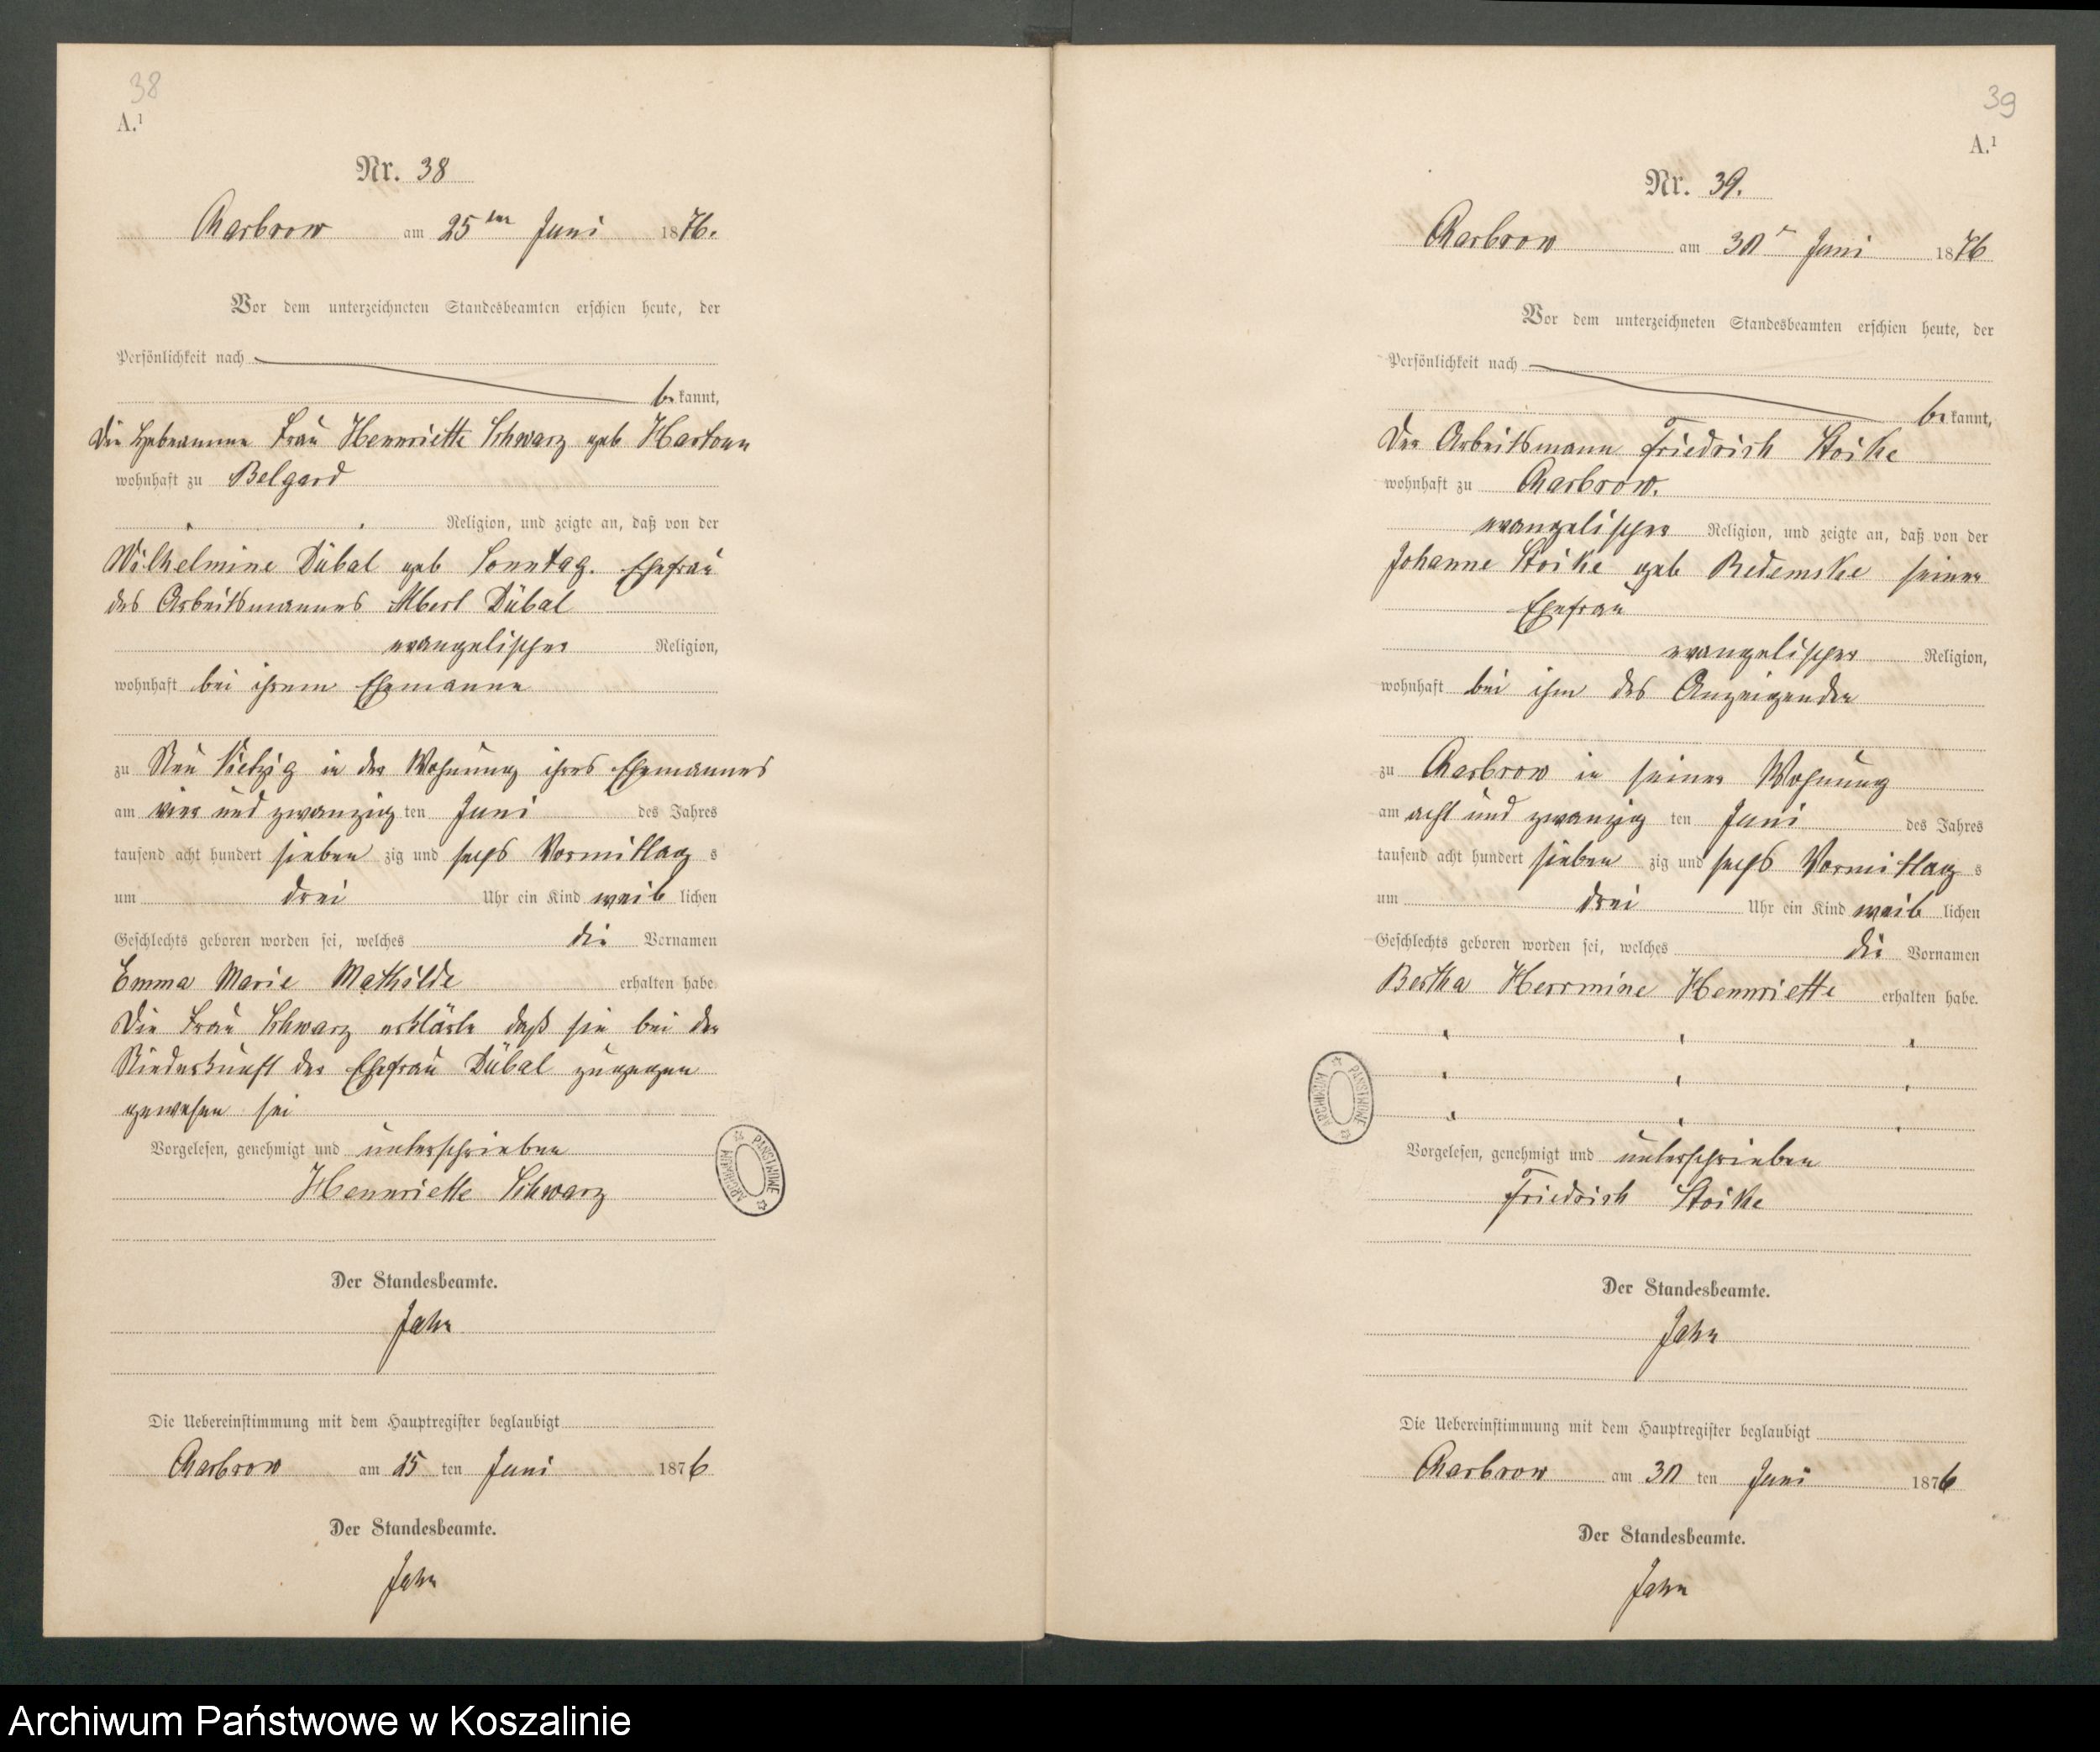 38
A.¹
Nr. 38
Charbrow am 25ten Juni 1876.
Vor dem unterzeichneten Standesbeamten erschien heute, der
Persönlichkeit nach
bekannt,
Die Hebeamme Frau Hennriette Schwarz geb
wohnhaft zu Belgard
Religion, und zeigte an, daß von der
Wilhelmine Dübal geb Sonntag. Ehefrau
des Arbeitsmannes Albert Dübal
evangelischer Religion,
wohnhaft bei ihrem Ehemanne
zu Neu Vietzig in der Wohnung ihres Ehemannes
am vier und zwanzig ten Juni des Jahres
tausend acht hundert sieben zig und sechs Vormittag s
um drei Uhr ein Kind weib lichen
Geschlechts geboren worden sei, welches die Vornamen
Emma Marie Mathilde erhalten habe.
Die Frau Schwarz erklärte daß sie bei der
Niederkunft der Ehefrau Dübal zugegen
gewesen sei
Vorgelesen, genehmigt und unterschrieben
Hennriette Schwarz
ARCHIWUM PAŃSTWOWE
Der Standesbeamte.
Jahn
Die Uebereinstimmung mit dem Hauptregister beglaubigt
Charbrow am 25 ten Juni 1876
Der Standesbeamte.
Jahn
39
A.¹
Nr. 39.
Charbrow am 30 Juni 1876
Vor dem unterzeichneten Standesbeamten erschien heute, der
Persönlichkeit nach
bekannt,
Der Arbeitsmann Friedrich Stoike
wohnhaft zu Charbrow.
evangelischer Religion, und zeigte an, daß von der
Johanne Stoike geb Redemske seiner
Ehefrau
evangelischer Religion,
wohnhaft bei ihm des Anzeigenden
zu Charbrow in seiner Wohnung
am acht und zwanzig ten Juni des Jahres
tausend acht hundert sieben zig und sechs Vormittag s
um drei Uhr ein Kind weib lichen
Geschlechts geboren worden sei, welches die Vornamen
Bertha Herrmine Hennriette erhalten habe.
ARCHIWUM PAŃSTWOWE
Vorgelesen, genehmigt und unterschrieben
Friedrich Stoike
Der Standesbeamte.
Jahn
Die Uebereinstimmung mit dem Hauptregister beglaubigt
Charbrow am 30 ten Juni 1876
Der Standesbeamte.
Jahn
Archiwum Państwowe w Koszalinie